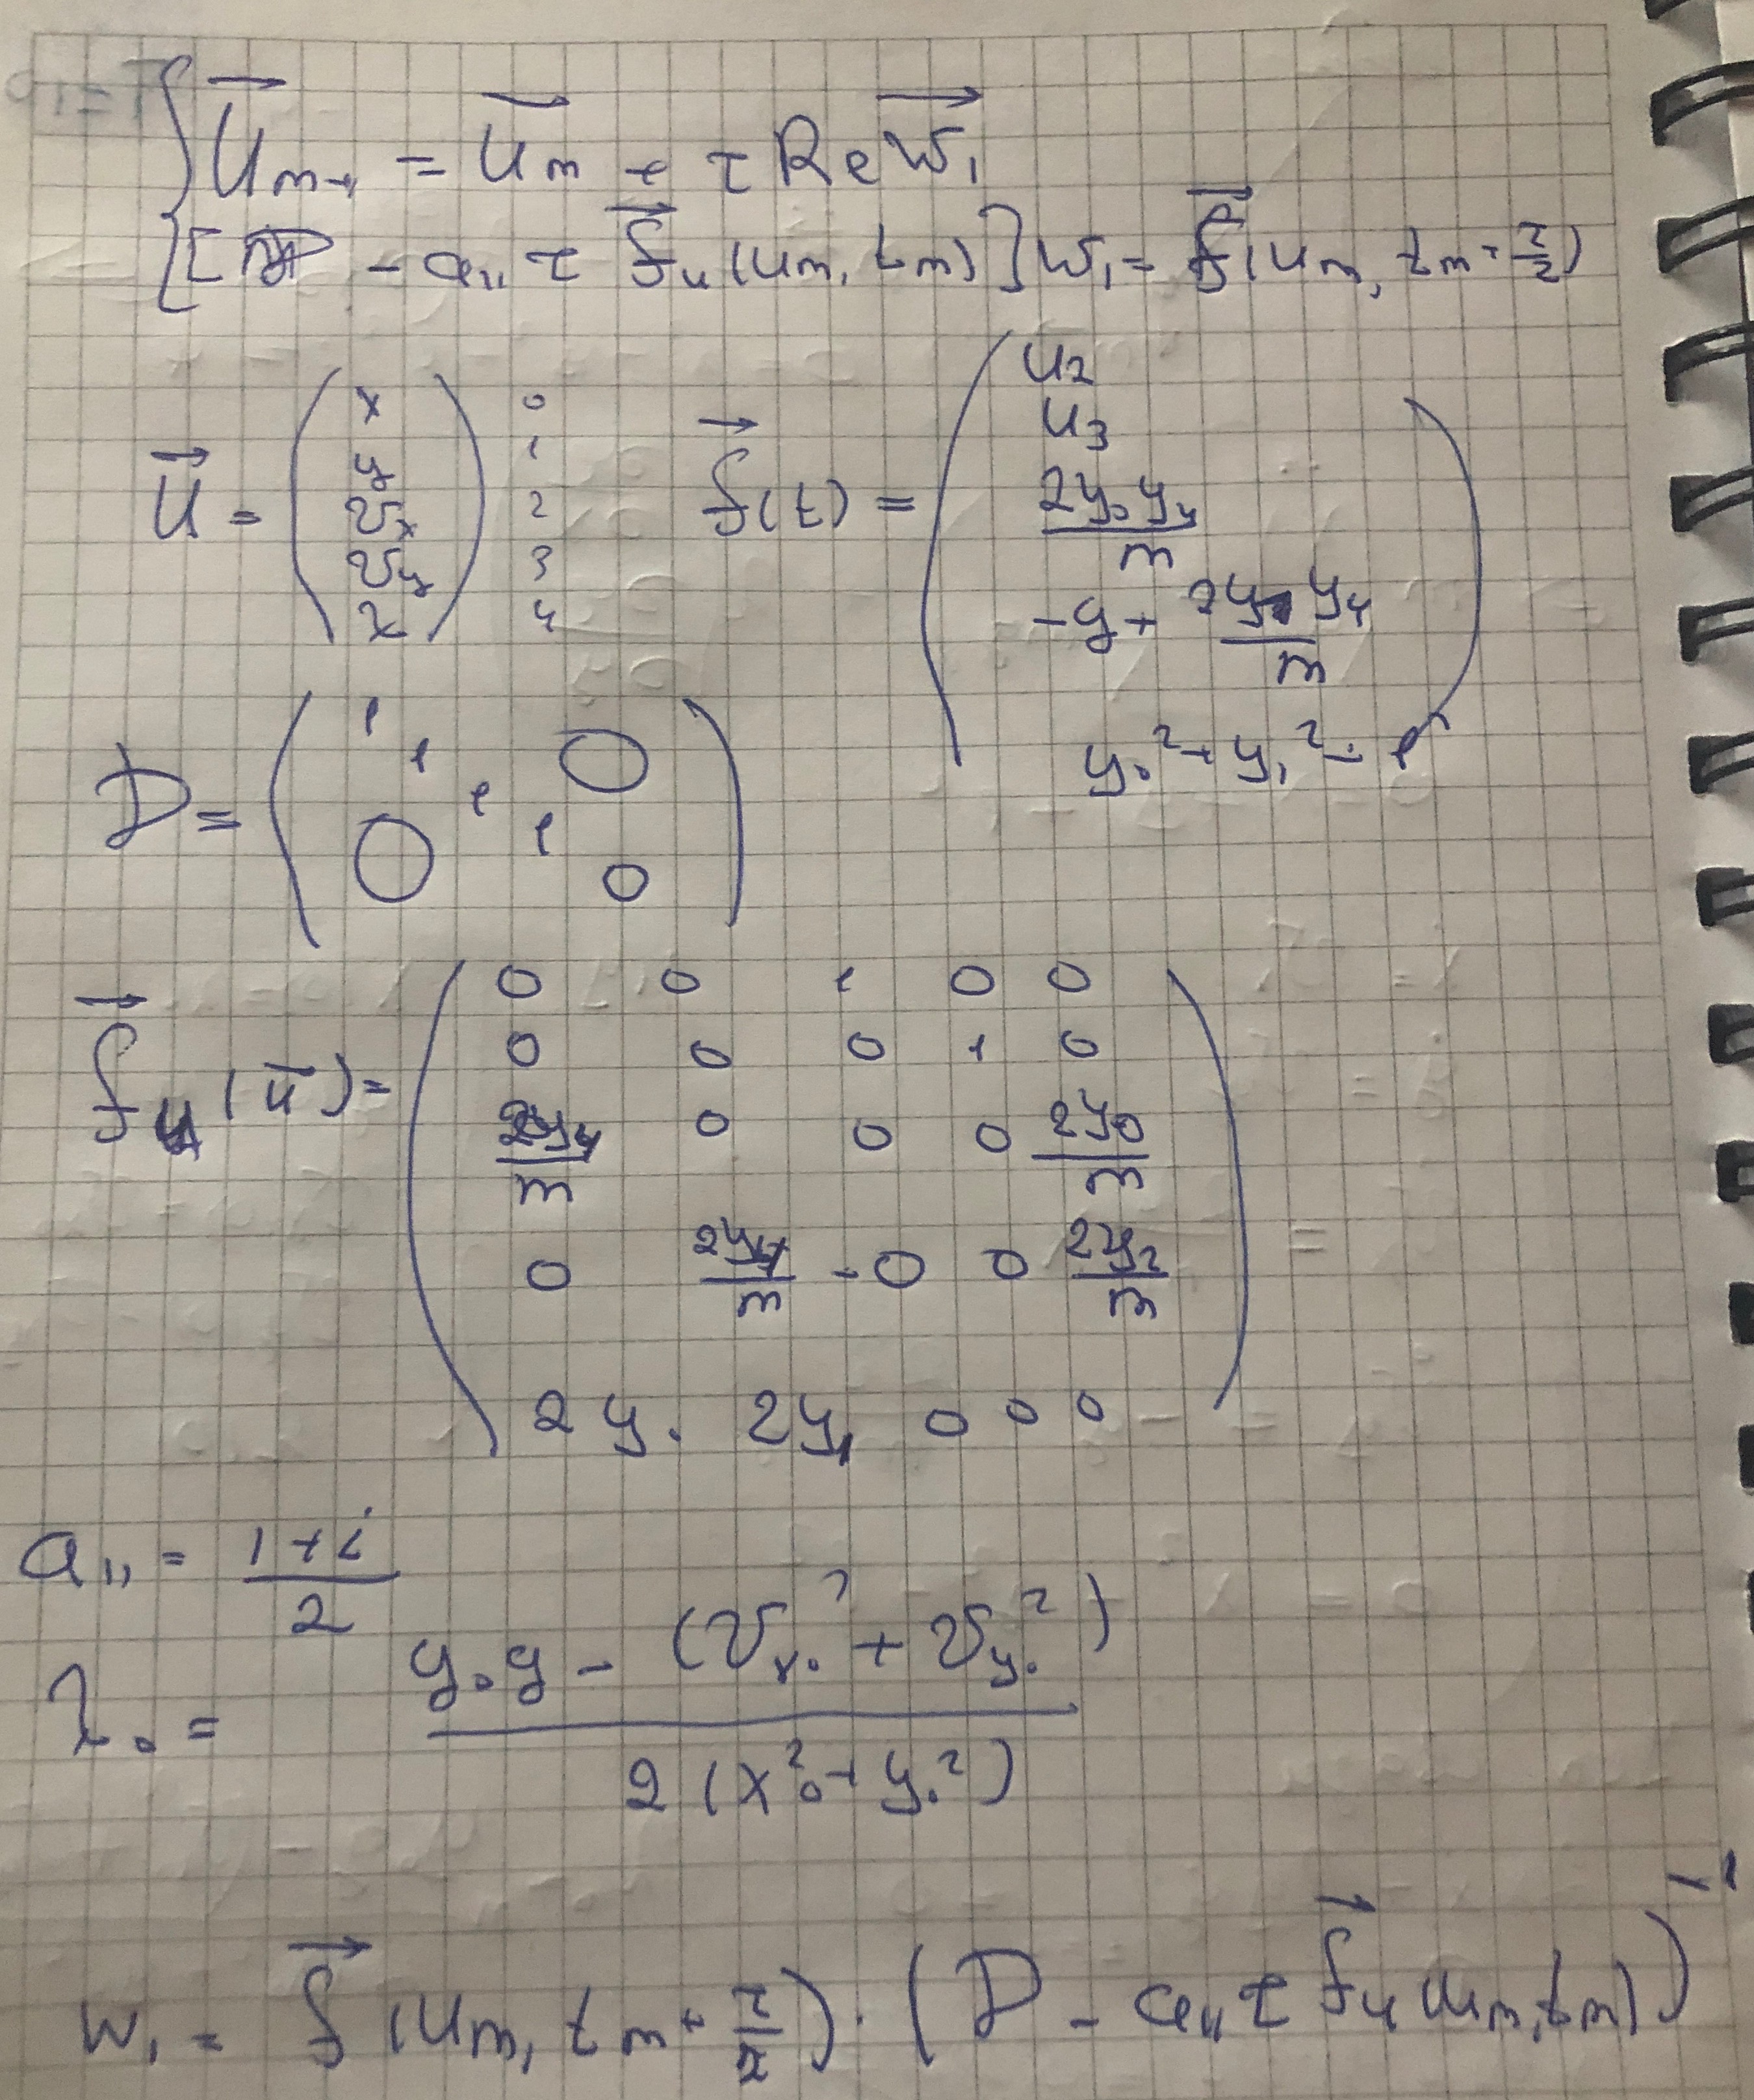 { U⃗m+1 = U⃗m + τ Re W⃗1
[D - a11 τ f⃗u (um, tm)] W1 = f⃗(um, tm + τ/2)
U⃗ = (x y vx vy λ) 0 1 2 3 4
f⃗(t) = (u2
u3
2y0 y4 / m
-g + 2y1 y4 / m
y0² + y1² - l²)
D = (1 1 1 1 0 0 0)
f⃗u (ū) = (0 0 1 0 0
0 0 0 1 0
2y4/m 0 0 0 2y0/m
0 2y4/m - 0 0 2y2/m
2y0 2y1 0 0 0)
a11 = (1 + i) / 2
λ0 = (y0 g - (vx0² + vy0²)) / (2 (x0² + y0²))
W1 = f⃗ (um, tm + τ/2) · (D - a11 τ f⃗u (um, tm))⁻¹